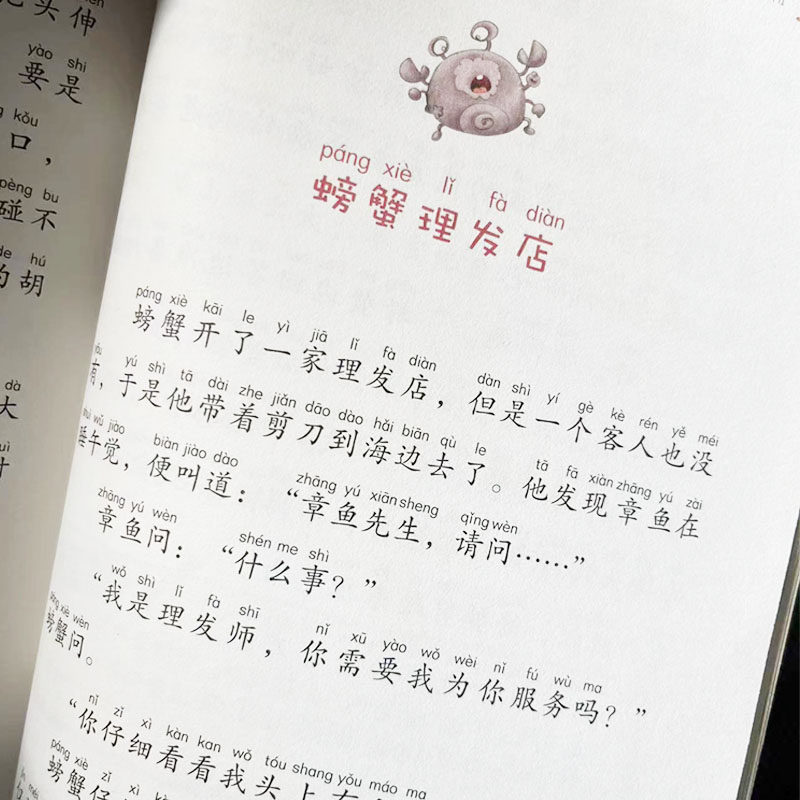 头伸
yào shi
要是
kǒu
口，
pèng bu
碰不
de hú
的胡
dà
大
páng xiè lǐ fà diàn
螃蟹理发店
páng xiè kāi le yì jiā lǐ fà diàn dàn shì yí gè kè rén yě méi
螃蟹开了一家理发店，但是一个客人也没
yǒu yú shì tā dài zhe jiǎn dāo dào hǎi biān qù le tā fā xiàn zhāng yú zài
有，于是他带着剪刀到海边去了。他发现章鱼在
shuì wǔ jiào biàn jiào dào zhāng yú xiān sheng qǐng wèn
睡午觉，便叫道：“章鱼先生，请问……”
zhāng yú wèn shén me shì
章鱼问：“什么事？”
wǒ shì lǐ fà shī nǐ xū yào wǒ wèi nǐ fú wù ma
“我是理发师，你需要我为你服务吗？”
páng xiè wèn
螃蟹问。
nǐ zǐ xì kàn kan wǒ tóu shang yǒu máo ma
“你仔细看看我头上有
páng xiè zǐ xì
螃蟹仔